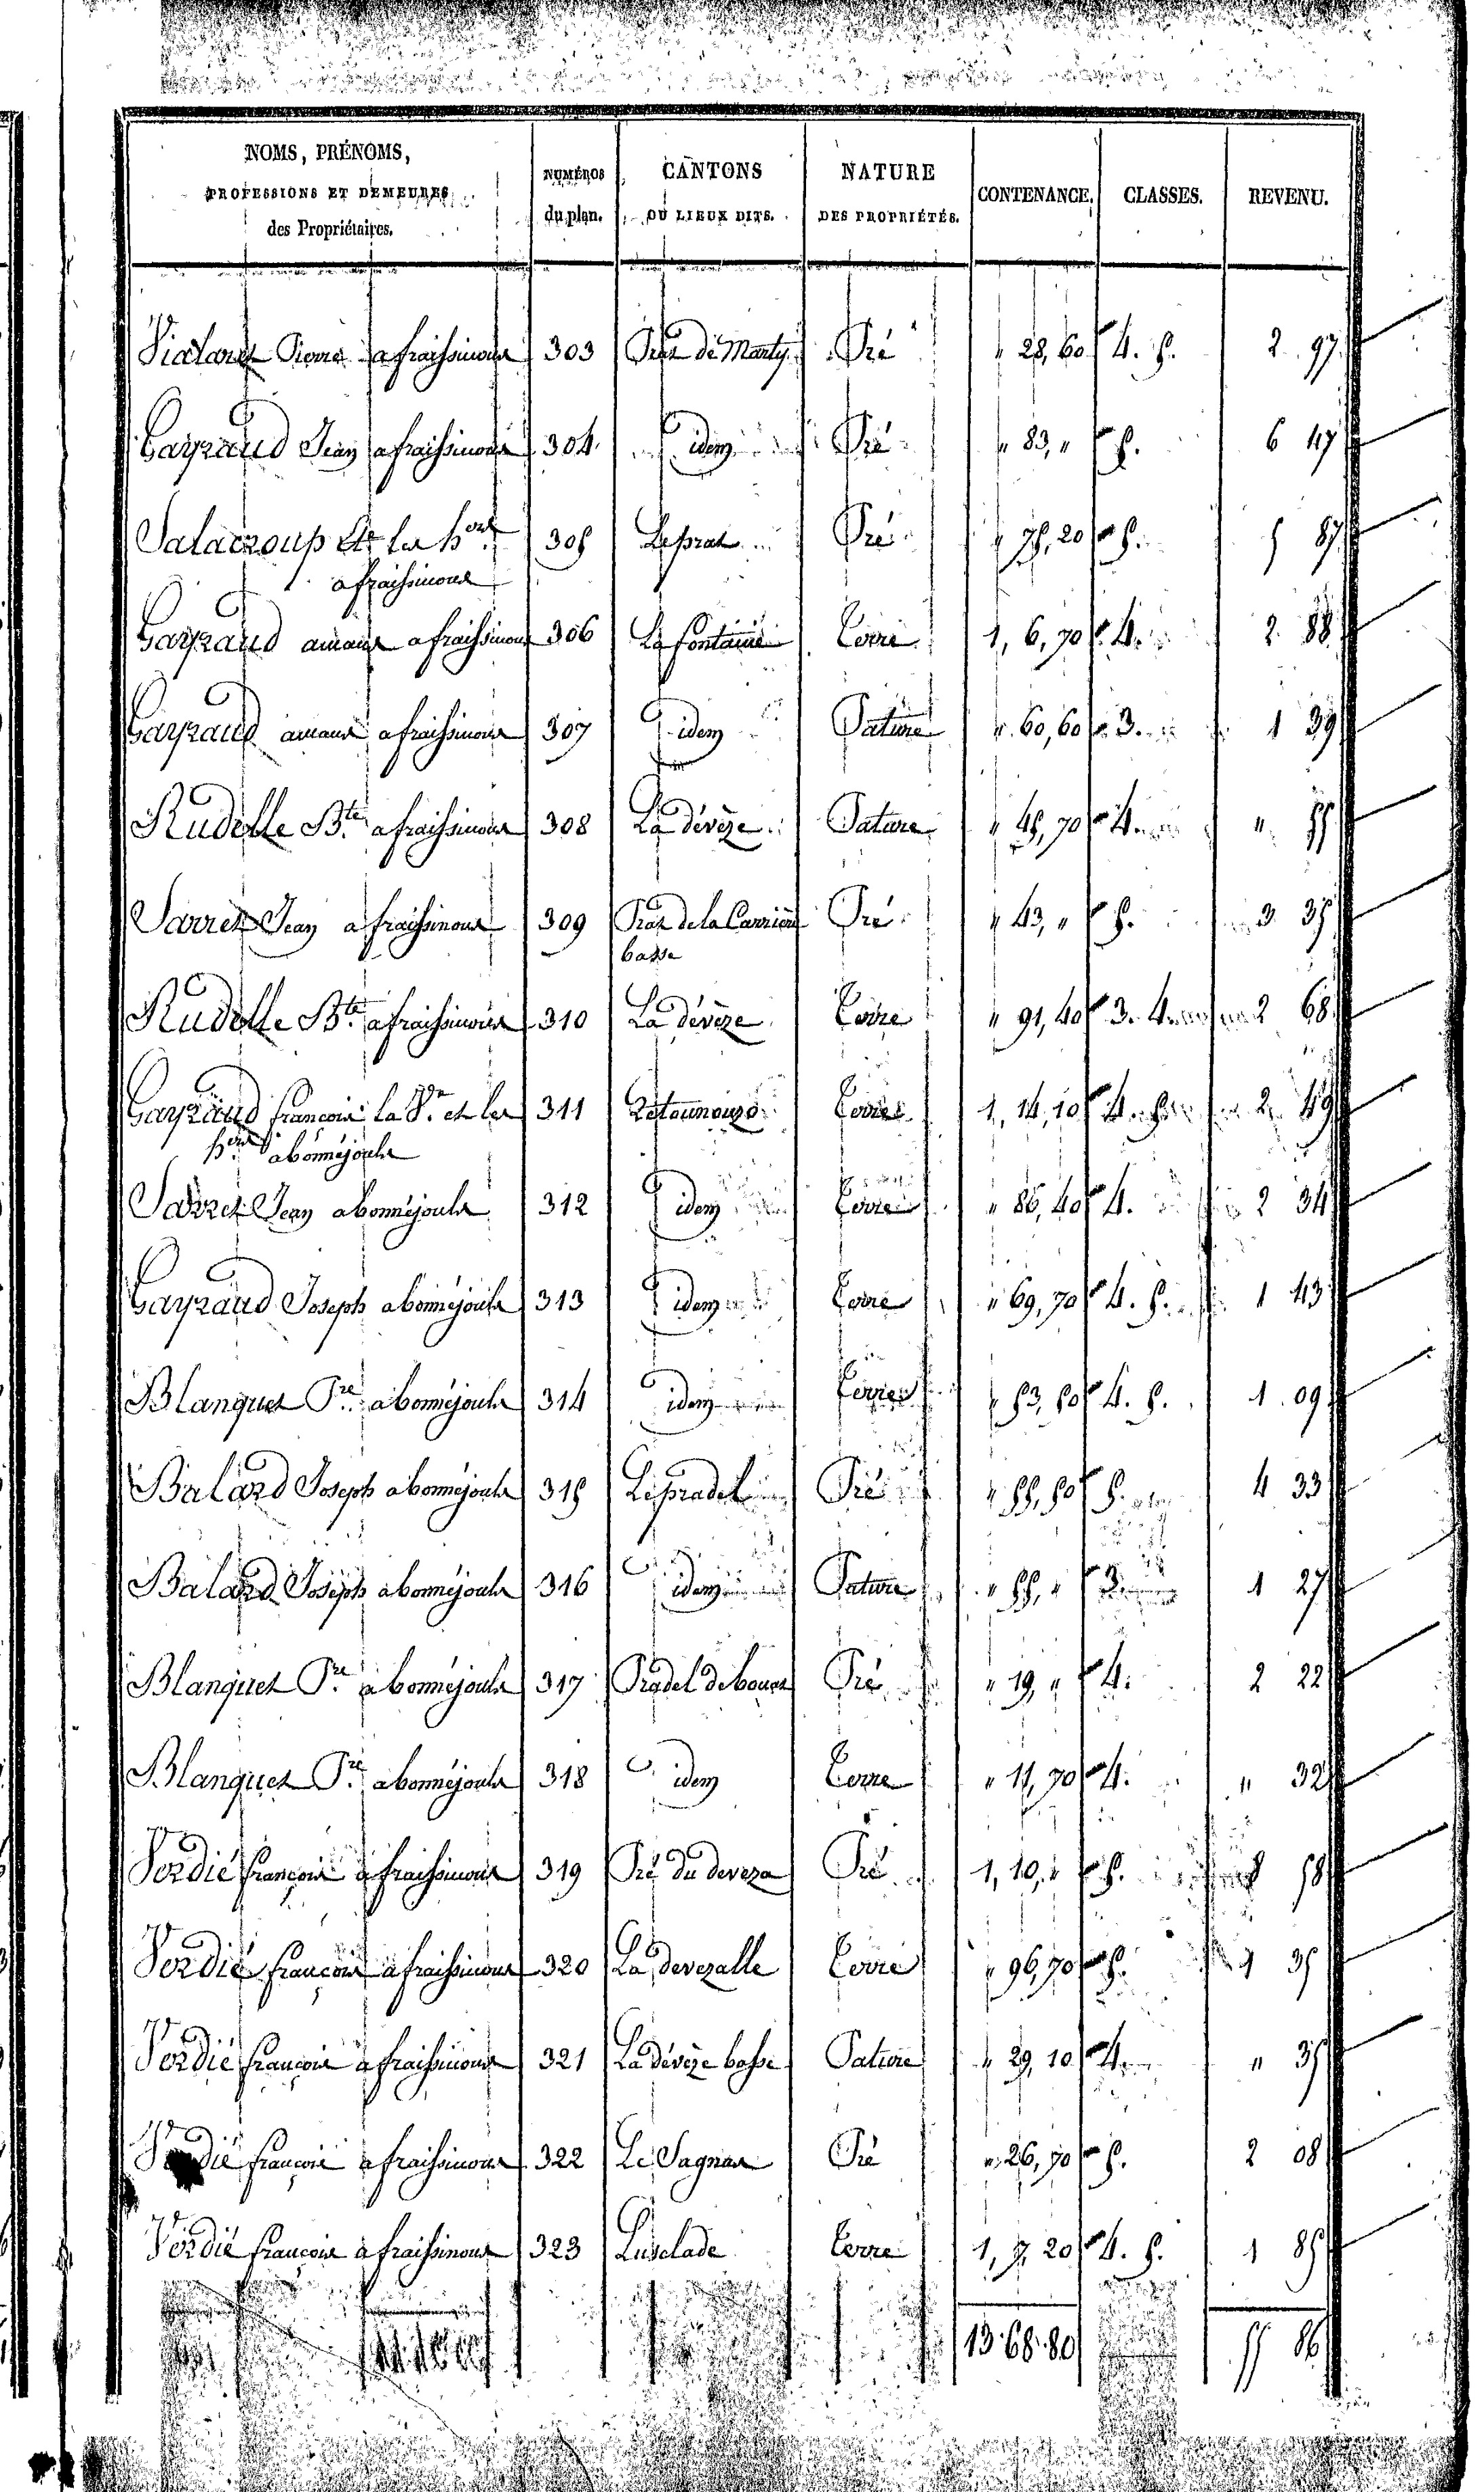 NOMS, PRÉNOMS,
PROFESSIONS ET DEMEURES
des Propriétaires.
NUMÉROS
du plan.
CANTONS
OU LIEUX DITS.
NATURE
DES PROPRIÉTÉS.
CONTENANCE.
CLASSES.
REVENU.
Vialaret Pierre a fraissinous 303 Prat de Marty Pré " 28, 60 4. 5. 2 97
Gayraud Jean a fraissinous 304 idem Pré " 83, " 5. 6 47
Salacroup les hers 305 Le prat Pré " 75, 20 5. 5 87
a fraissinous
Gayraud amans a fraissinous 306 La fontaine Terre 1, 6, 70 4. 2 88
Gayraud amans a fraissinous 307 idem Pature " 60, 60 3. 1 39
Rudelle Bte a fraissinous 308 La dévèze Pature " 45, 70 4. " 55
Sarret Jean a fraissinous 309 Prat de la Carrière Pré " 43, " 5. 3 35
basse
Rudelle Bte a fraissinous 310 La dévèze Terre " 91, 40 3. 4. 2 68
Gayraud françois la Ve et les 311 Terre 1, 14, 10 4. 5. 2 49
hers a bonnéjouls
Sarret Jean a bonnéjouls 312 idem Terre " 86, 40 4. 2 34
Gayraud Joseph a bonnéjouls 313 idem Terre " 69, 70 4. 5. 1 43
Blanquet Pre a bonnéjouls 314 idem Terre " 53, 50 4. 5. 1 09
Balard Joseph a bonnéjouls 315 Le pradel Pré " 55, 50 5. 4 33
Balard Joseph a bonnéjouls 316 idem Pature " 55, " 3. 1 27
Blanquet Pre a bonnéjouls 317 Pradel de Pré " 19, " 4. 2 22
Blanquet Pre a bonnéjouls 318 idem Terre " 11, 70 4. " 32
Verdié françois a fraissinous 319 Pré du deveza Pré 1, 10, " 5. 8 58
Verdié françois a fraissinous 320 La devezalle Terre " 96, 70 5. 1 35
Verdié françois a fraissinous 321 La dévèze basse Pature " 29, 10 4. " 35
Verdié françois a fraissinous 322 Le Sagnas Pré " 26, 70 5. 2 08
Verdié françois a fraissinous 323 Lusclade Terre 1, 7, 20 4. 5. 1 85
13 68 80 55 86